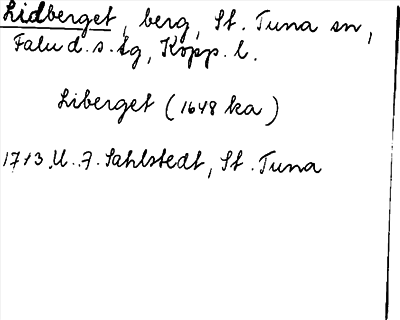 Lidberget, berg, St. Tuna sn,
Falu d.s. tg, Kopp. l.
Liberget (1648 ka)
1713 U. F. Sahlstedt, St. Tuna